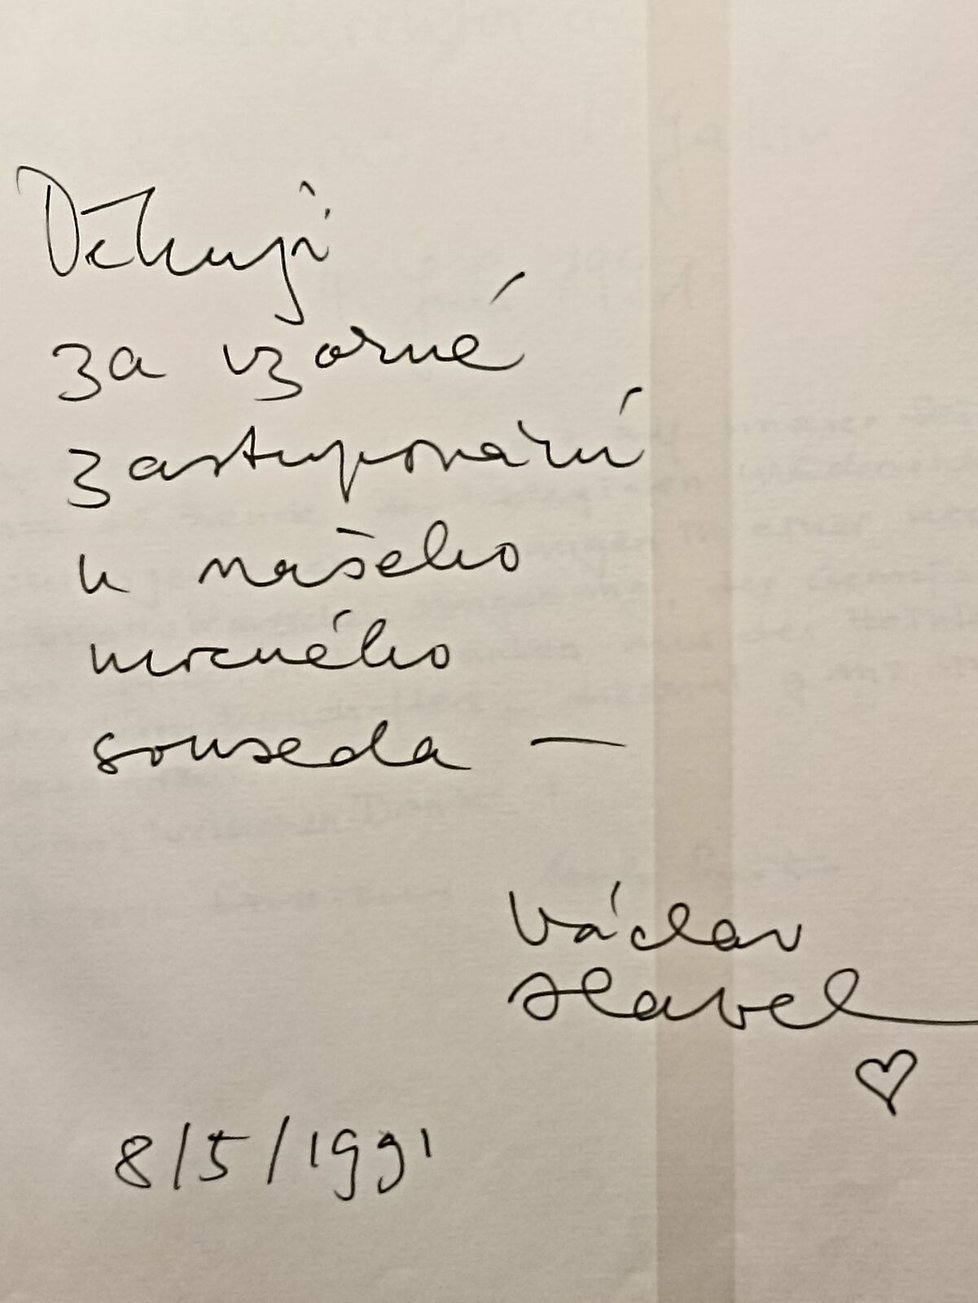 Děkuji
za vzorné
zastupování
u našeho
mocného
souseda —
Václav
Havel
8/5/1991